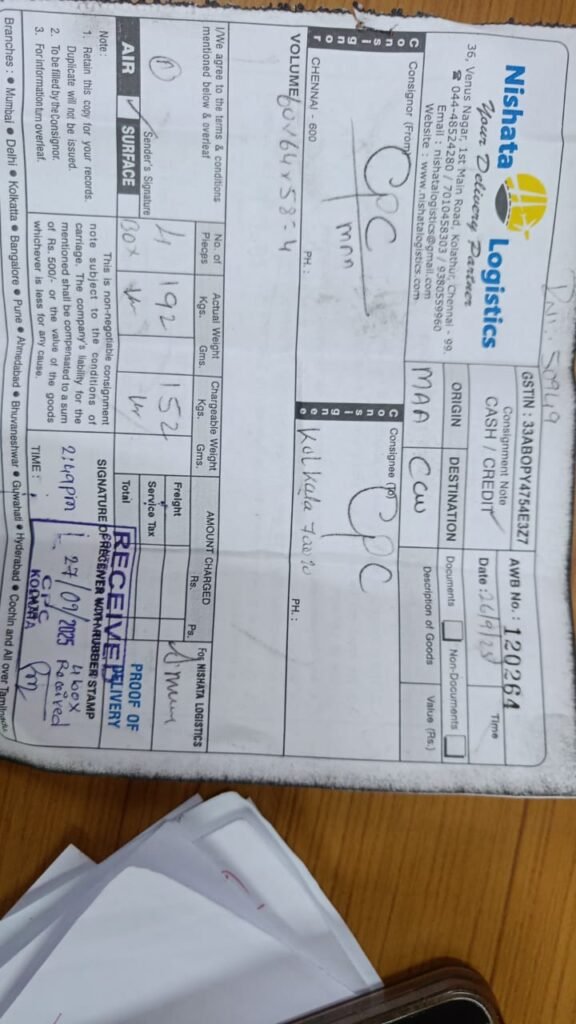 Nishata Logistics
Your Delivery Partner
36, Venus Nagar, 1st Main Road, Kolathur, Chennai - 99.
☎ 044-48524280 / 7010458303 / 9380559960
Email : nishatalogistics@gmail.com
Website : www.nishatalogistics.com
GSTIN : 33ABOPY4754E3Z7
Consignment Note
CASH / CREDIT
AWB No. : 120264
Date : 26/9/25
Time
ORIGIN
MAA
DESTINATION
CCU
Documents
Non-Documents
Description of Goods
Value (Rs.)
Consignor
Consignor (From)
CPC
MAA
CHENNAI - 600
PH :
Consignee
Consignee (To)
CPC
Kolkata
PH. :
VOLUME 60x64x58=4
I/We agree to the terms & conditions
mentioned below & overleaf
Sender's Signature
AIR
SURFACE
No. of
Pieces
4
Box
Actual Weight
Kgs. Gms.
192
Chargeable Weight
Kgs. Gms.
152
AMOUNT CHARGED
Rs. Ps.
Freight
Service Tax
Total
For NISHATA LOGISTICS
Note :
1. Retain this copy for your records.
Duplicate will not be issued.
2. To be filled by the Consignor.
3. For information turn overleaf.
This is non-negotiable consignment
note subject to the conditions of
carriage. The company's liability for the
mentioned shall be compensated to a sum
of Rs. 500/- or the value of the goods
whichever is less for any cause.
PROOF OF
DELIVERY
RECEIVED
SIGNATURE OF RECEIVER WITH RUBBER STAMP
2:49pm
27/09/2025
4 box
Received
TIME :
CPC
KOLKATA
Branches : ● Mumbai ● Delhi ● Kolkatta ● Bangalore ● Pune ● Ahmedabad ● Bhuvaneshwar ● Guwahati ● Hyderabad ● Cochin and All over Tamilnadu